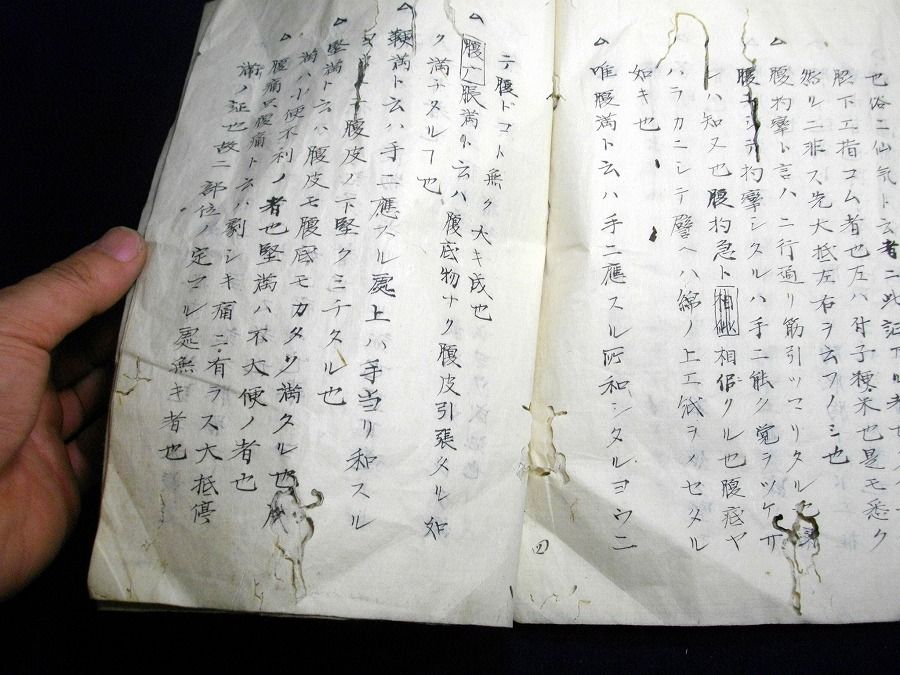 股下エ指コム者也左ハ附子粳米也是モ悉ク
然ルニ非ス先大抵左右ヲ云フノミ也
△腹拘攣ト言ハ二行通リ筋引ツマリタル
拘攣シタルハ手ニ能ク覚ヲツケサ
レハ知又也腹拘急ト相似相佀タル也腹底ヤ
ハラカニシテ譬ヘハ綿ノ上エ紙ヲノセタル
如キ也
△唯腹満ト云ハ手ニ應スル所和シタルヨウニ
四
テ腹ドコト無ク大キ成也
△腹脹満ト云ハ腹底物ナク腹皮引張タル如
ク満ナタルヿ也
△鞕満ト云ハ手ニ應スル処上ハ手当リ和スル
腹皮ノ下堅クミチタル也
△堅満ト云ハ腹皮モ腹底モカタク満タル也
満ハ小便不利ノ者也堅満ハ不大便ノ者也
△腹痛只腹痛ト云ハ劇シキ痛ニ有ラス大抵停
滞ノ証也故ニ部位ノ定マル処無キ者也